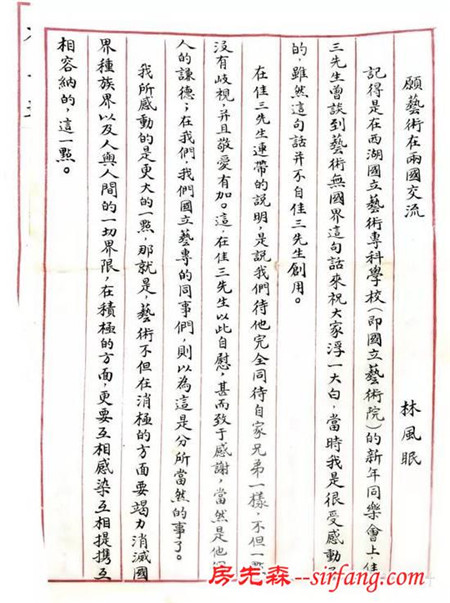 願藝術在兩國交流 林風眠
記得是在西湖國立藝術專科學校(即國立藝術院)的新年同樂會上,佳
三先生曾談到藝術無國界這句話來祝大家浮一大白,當時我是很受感動
的,雖然這句話并不自佳三先生創用。
在佳三先生連帶的說明,是說我們待他完全同待自家兄弟一樣,不但一
沒有歧視,并且敬愛有加。這,在佳三先生以此自慰,甚而致于感謝,當然是他
人的謙德;在我們,我們國立藝專的同事們,則以為這是分所當然的事了。
我所感動的是更大的一點,那就是,藝術不但在消極的方面要竭力消滅國
界種族界以及人與人間的一切界限,在積極的方面,更要互相感染互相提攜互
相容納的,這一點。
房先森--sirfang.com